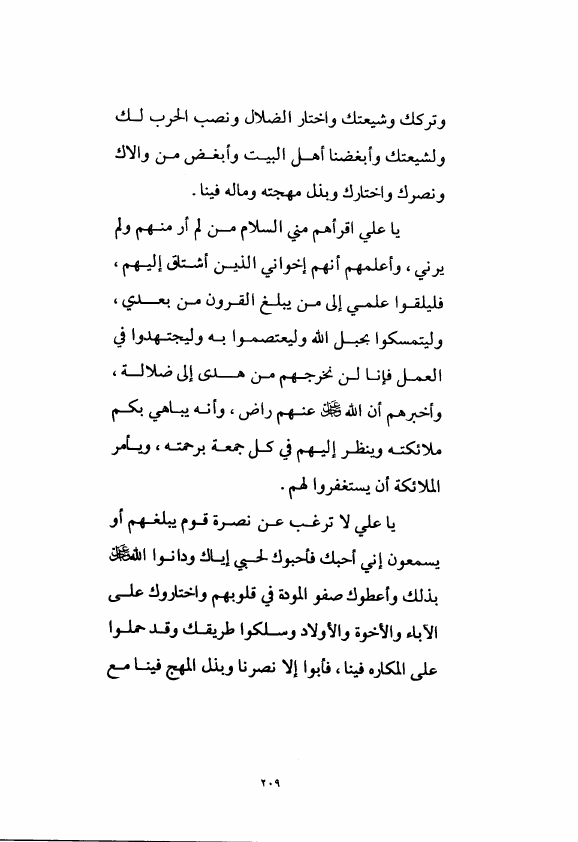 وتركك وشيعتك واختار الضلال ونصب الحرب لك
ولشيعتك وأبغضنا أهل البيت وأبغض من والاك
ونصرك واختارك وبذل مهجته وماله فينا .
يا علي اقرأهم مني السلام من لم أر منهم ولم
يرني ، وأعلمهم أنهم إخواني الذين أشتاق إليهم ،
فليلقوا علمي إلى من يبلغ القرون من بعدي ،
وليتمسكوا بحبل الله وليعتصموا به وليجتهدوا في
العمل فإنا لن نخرجهم من هدى إلى ضلالة ،
وأخبرهم أن الله عنهم راض ، وأنه يباهي بكم
ملائكته وينظر إليهم في كل جمعة برحمته ، ويأمر
الملائكة أن يستغفروا لهم .
يا علي لا ترغب عن نصرة قوم يبلغهم أو
يسمعون إني أحبك فأحبوك لحبي إياك ودانوا الله
بذلك وأعطوك صفو المودة في قلوبهم واختاروك على
الآباء والأخوة والأولاد وسلكوا طريقك وقد حملوا
على المكاره فينا ، فأبوا إلا نصرنا وبذل المهج فينا مع
٢٠٩